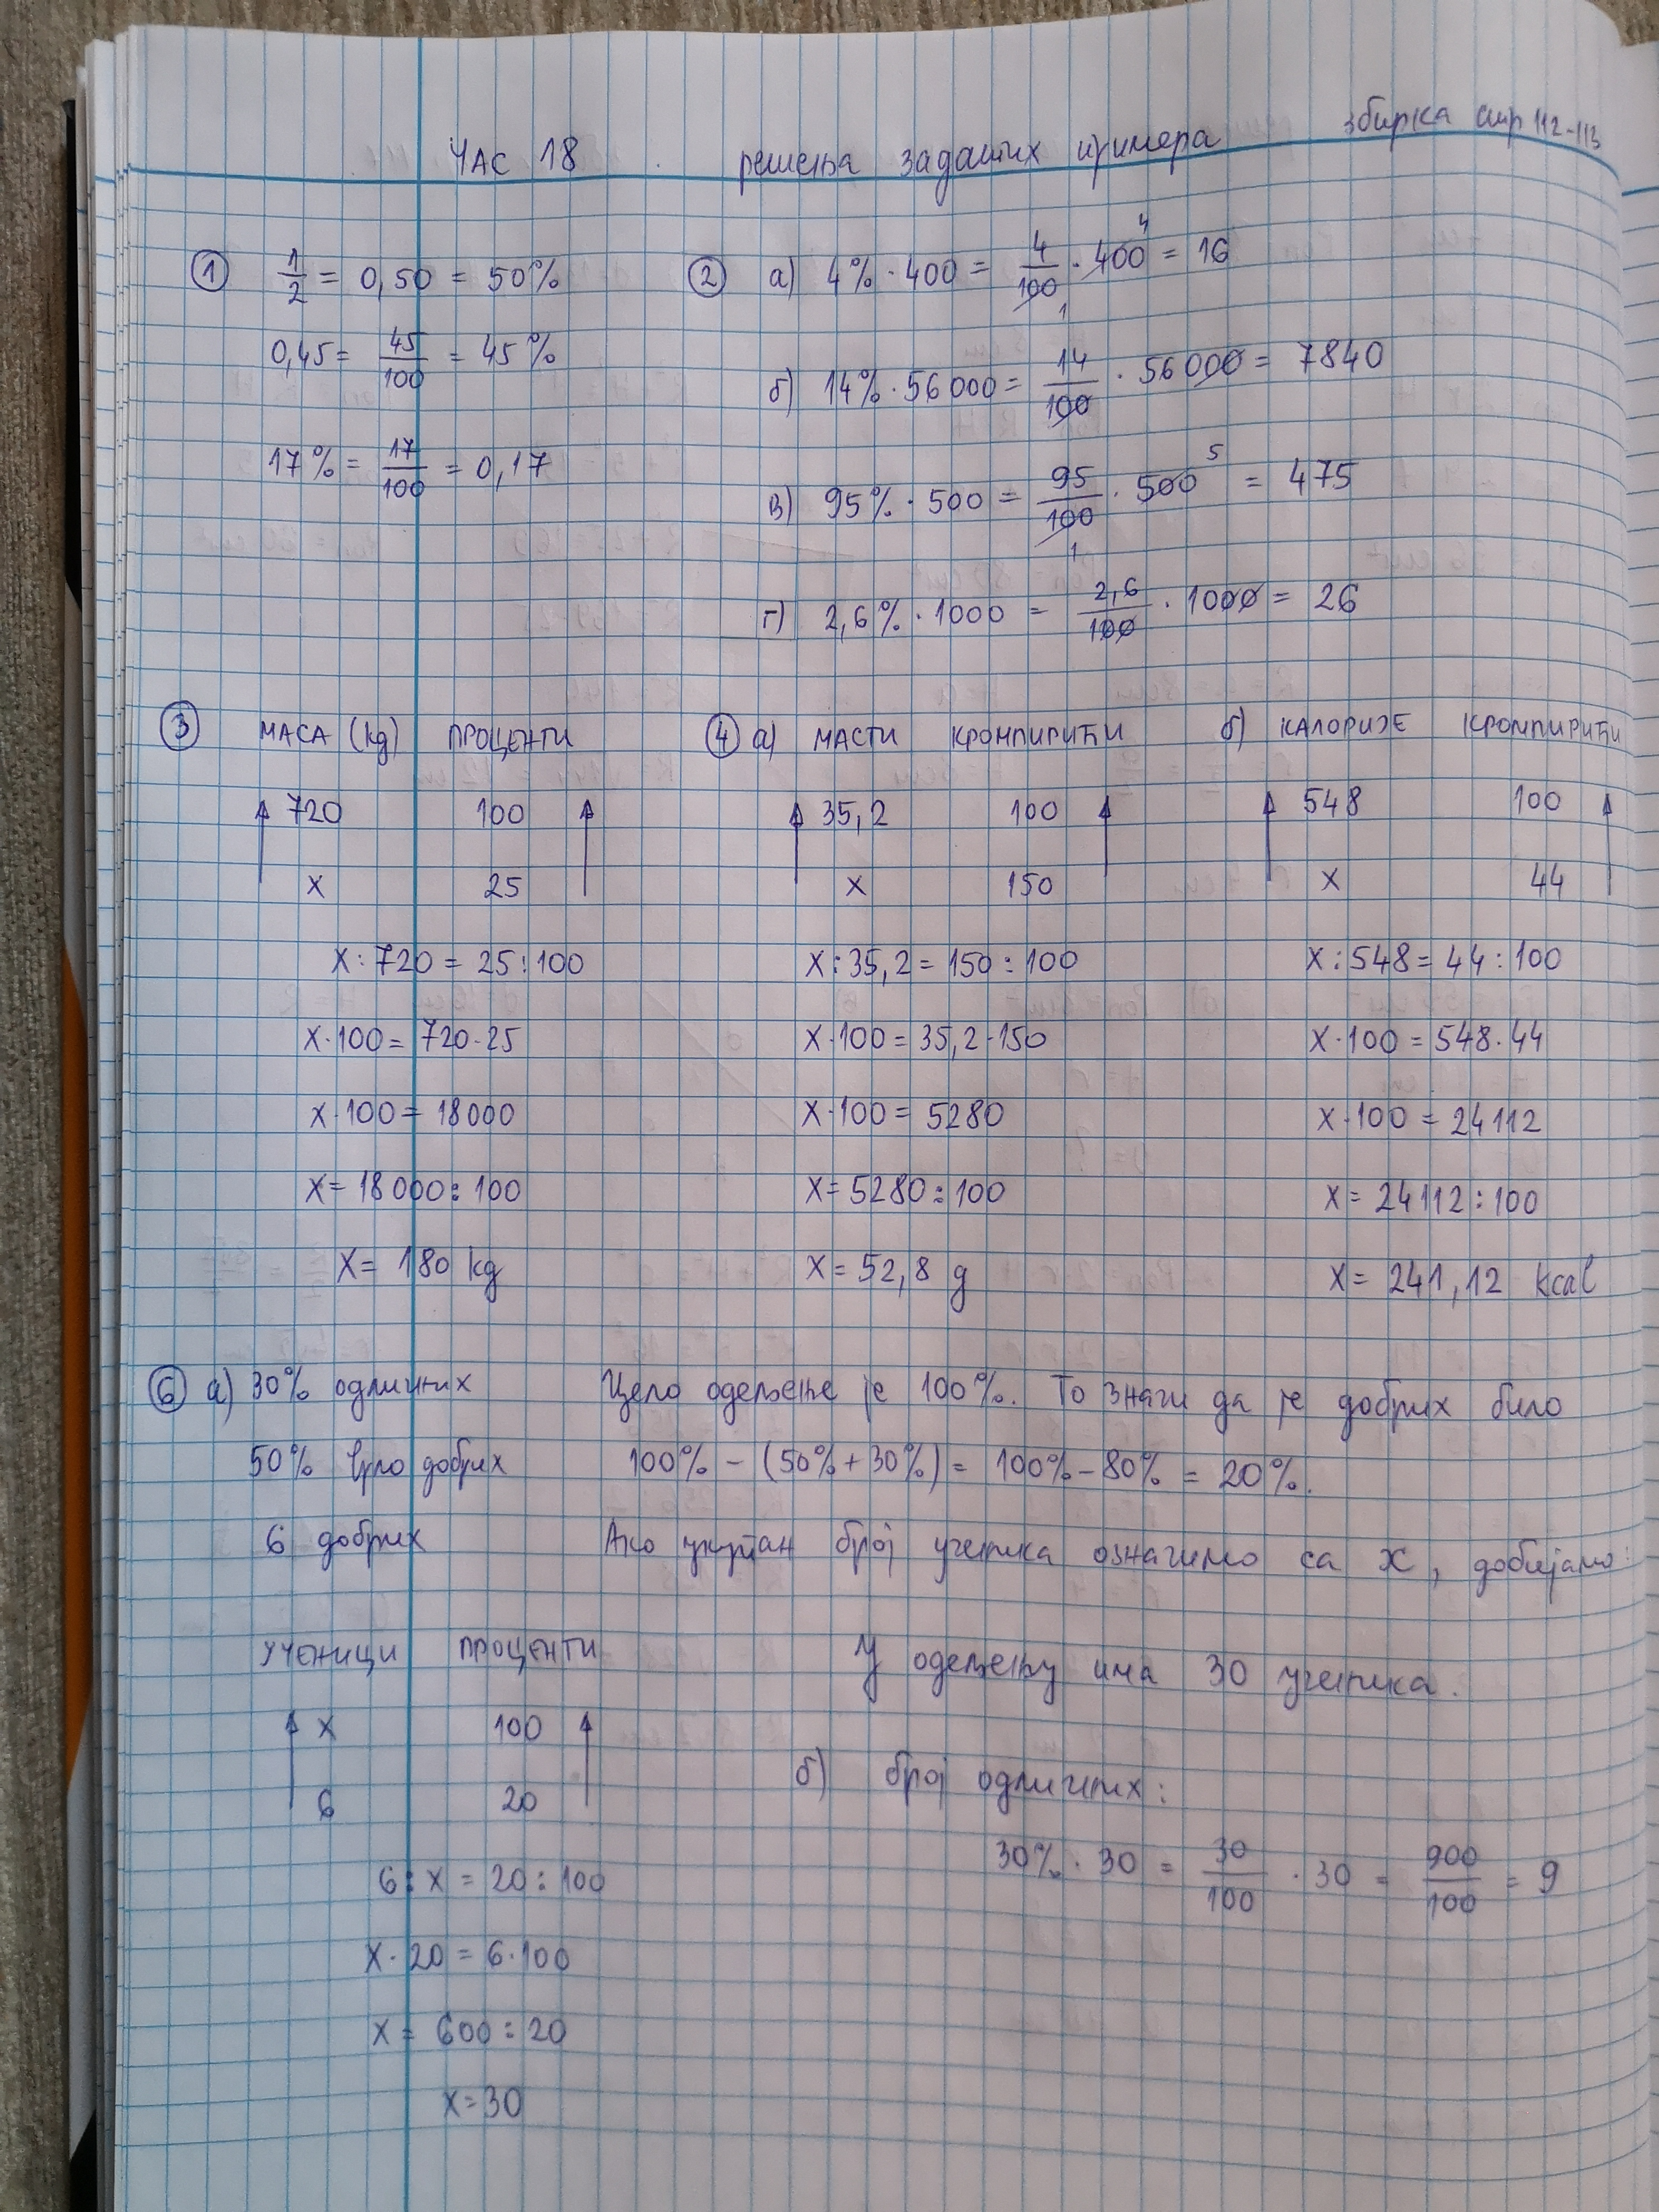 ЧАС 18 решења задатих примера збирка стр 112-113
① 1/2 = 0,50 = 50%
0,45 = 45/100 = 45%
17% = 17/100 = 0,17
② а) 4% · 400 = 4/100 · 400 = 16
4
1
б) 14% · 56 000 = 14/100 · 56 000 = 7840
в) 95% · 500 = 95/100 · 500 = 475
5
1
г) 2,6% · 1000 = 2,6/100 · 1000 = 26
③ МАСА (kg) ПРОЦЕНТИ
720 100
x 25
x : 720 = 25 : 100
x · 100 = 720 · 25
x · 100 = 18 000
x = 18 000 : 100
x = 180 kg
④ а) МАСТИ КРОМПИРИЋИ
35,2 100
x 150
x : 35,2 = 150 : 100
x · 100 = 35,2 · 150
x · 100 = 5280
x = 5280 : 100
x = 52,8 g
б) КАЛОРИЈЕ КРОМПИРИЋИ
548 100
x 44
x : 548 = 44 : 100
x · 100 = 548 · 44
x · 100 = 24 112
x = 24 112 : 100
x = 241,12 kcal
⑥ а) 30% одличних
50% врло добрих
6 добрих
Цело одељење је 100%. То значи да је добрих било
100% - (50% + 30%) = 100% - 80% = 20%.
Ако укупан број ученика означимо са x, добијамо:
УЧЕНИЦИ ПРОЦЕНТИ
x 100
6 20
6 : x = 20 : 100
x · 20 = 6 · 100
x = 600 : 20
x = 30
У одељењу има 30 ученика.
б) број одличних:
30% · 30 = 30/100 · 30 = 900/100 = 9